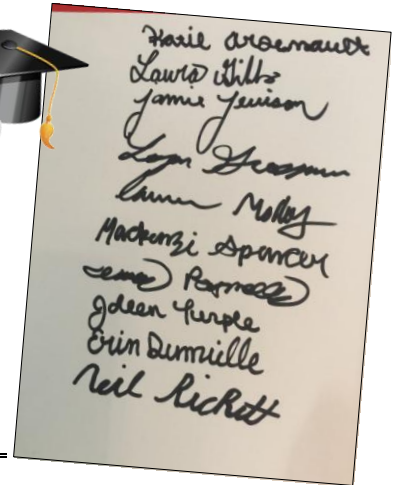 Karie Arsenault
Laura Gibbs
Jamie Jenison
Logan Grossman
Lauren Molloy
Mackenzi Spencer
Jolean Turple
Erin Dunville
Neil Rickett